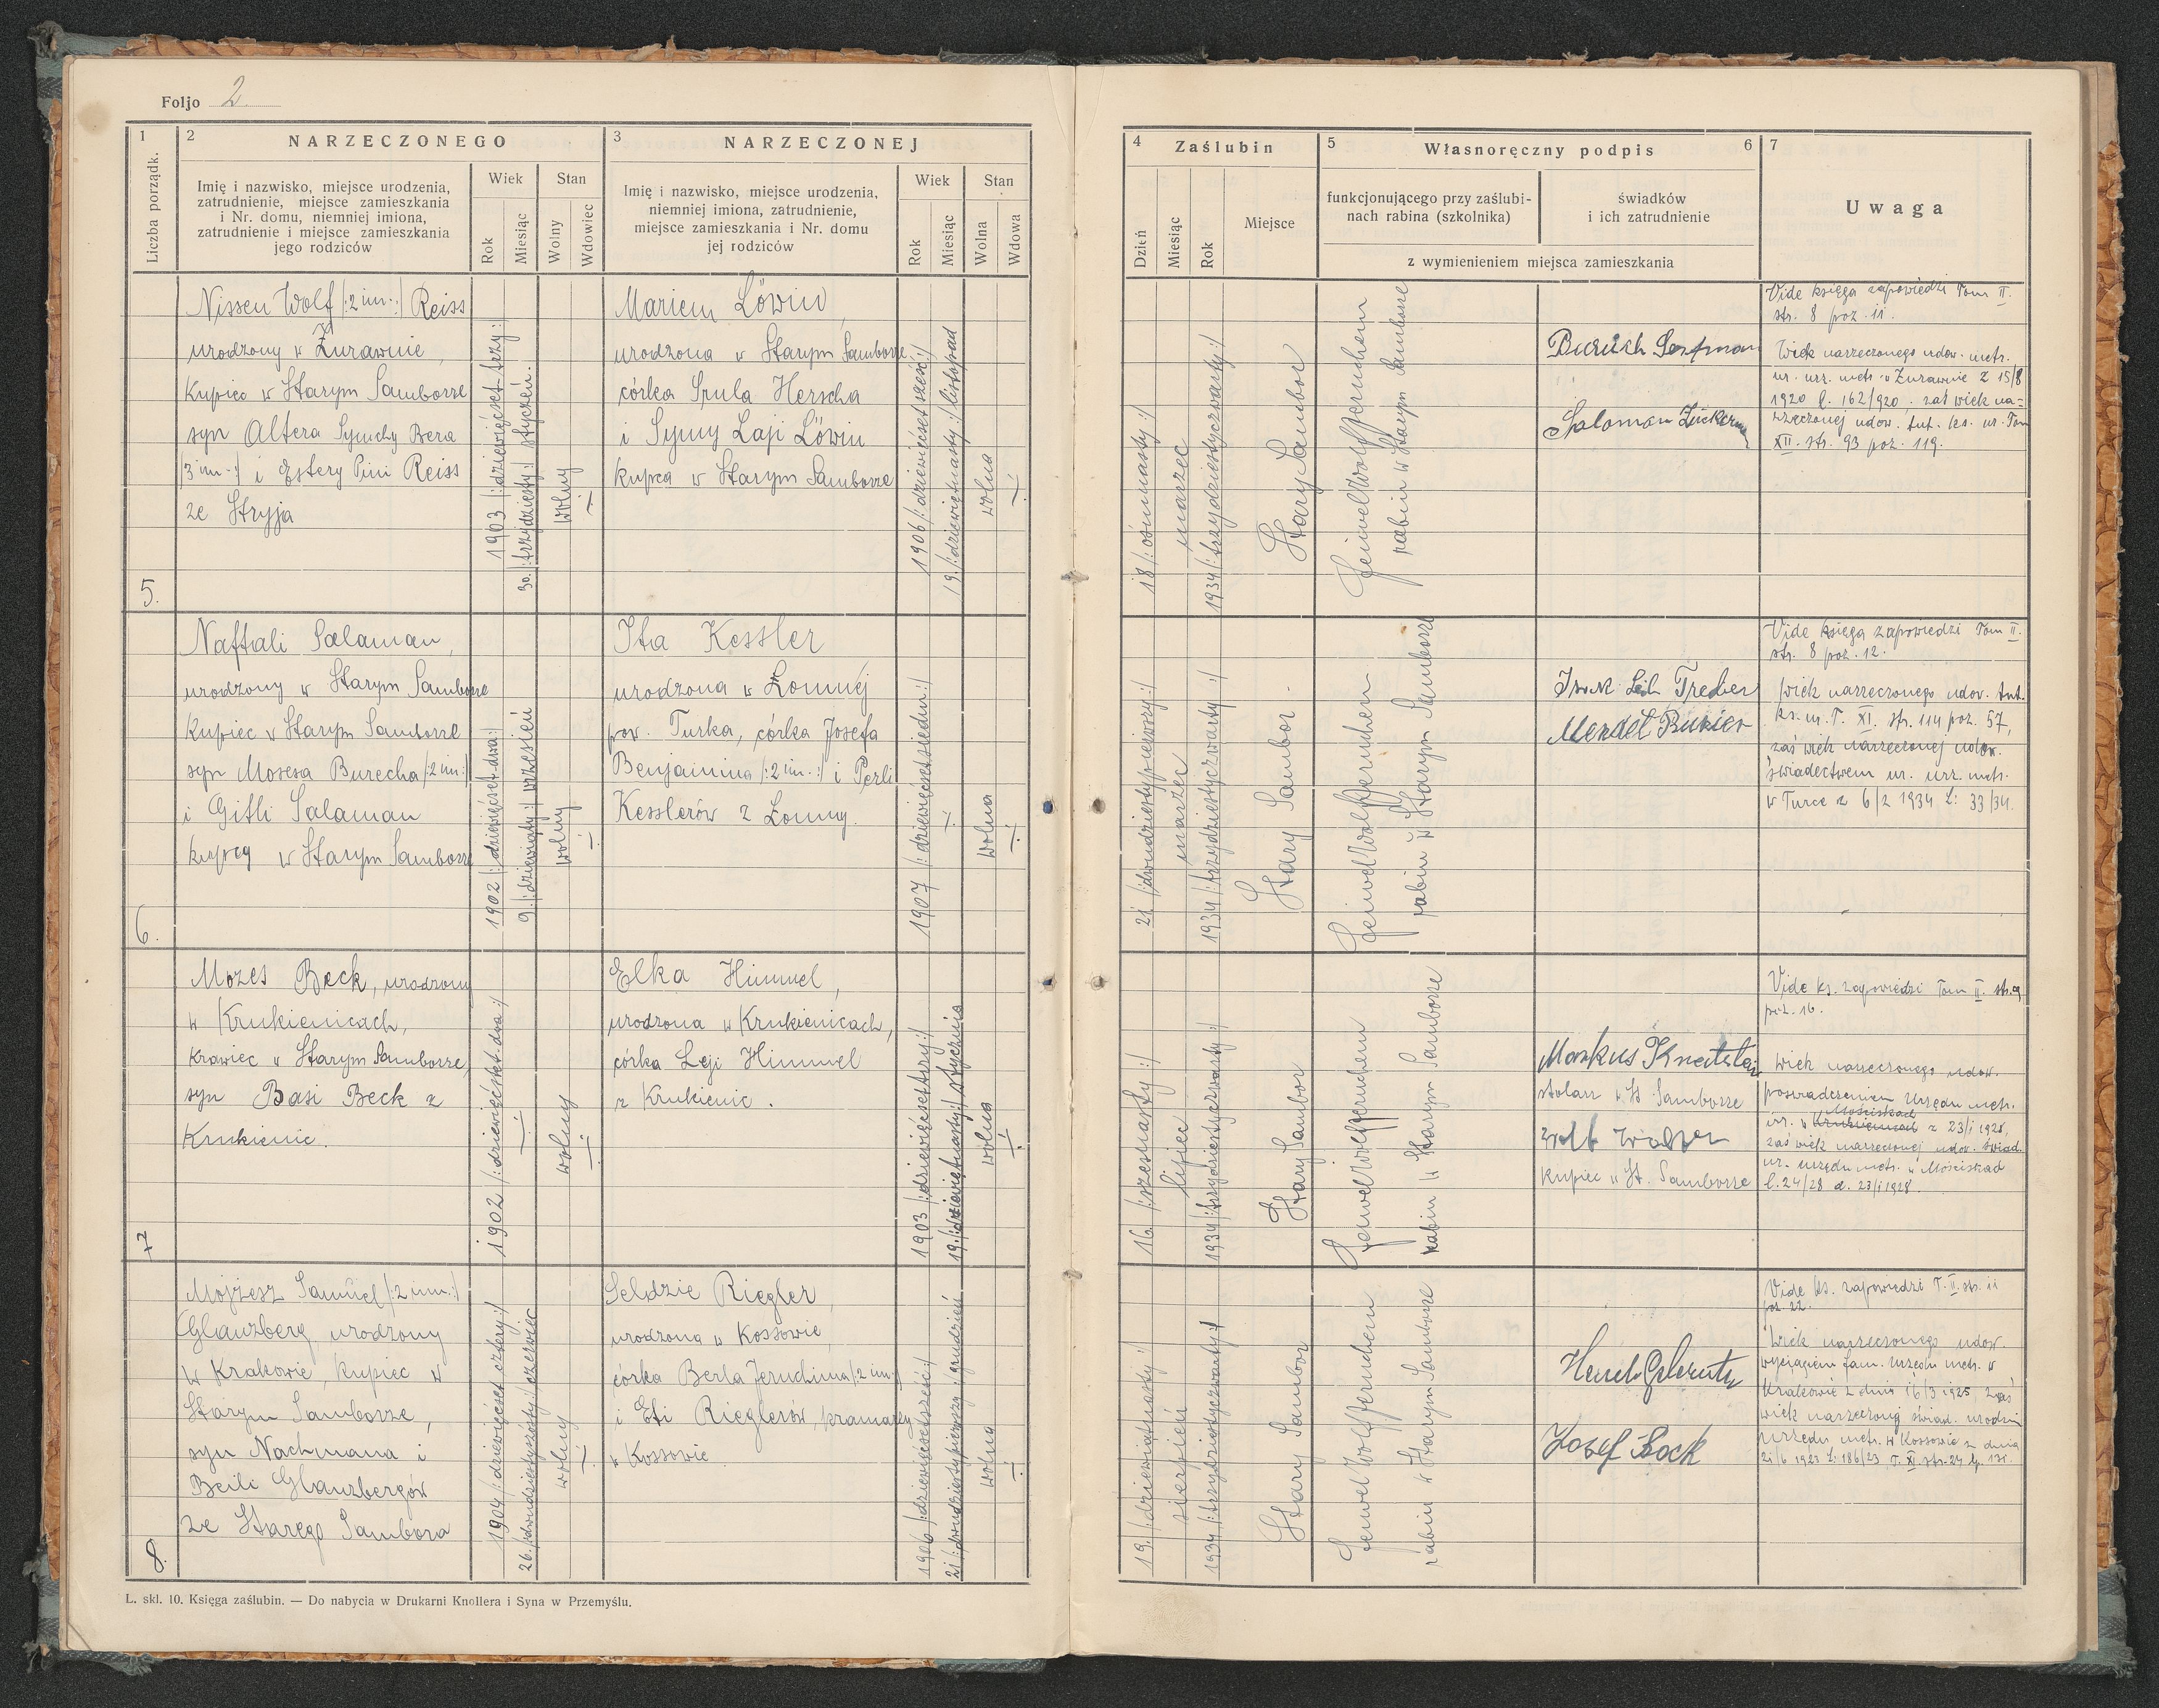 Foljo 2.
1
Liczba porządk.
2 NARZECZONEGO
Imię i nazwisko, miejsce urodzenia,
zatrudnienie, miejsce zamieszkania
i Nr. domu, niemniej imiona,
zatrudnienie i miejsce zamieszkania
jego rodziców
Wiek
Rok
Miesiąc
Stan
Wolny
Wdowiec
3 NARZECZONEJ
Imię i nazwisko, miejsce urodzenia,
niemniej imiona, zatrudnienie,
miejsce zamieszkania i Nr. domu
jej rodziców
Wiek
Rok
Miesiąc
Stan
Wolna
Wdowa
4 Zaślubin
Dzień
Miesiąc
Rok
Miejsce
5 Własnoręczny podpis 6
funkcjonującego przy zaślubi-
nach rabina (szkolnika)
świadków
i ich zatrudnienie
z wymienieniem miejsca zamieszkania
7
Uwaga
5.
Nissen Wolf /:2 im:/ Reiss
urodzony w Żurawnie,
Kupiec w Starym Samborze
syn Altera Symchy Bera
/3 im:/ i Estery Pini Reiss
ze Stryja
1903 /:dziewięćset trzy:/
30. /:trzydziesty:/ styczeń.
wolny
Mariem Löwin,
urodzona w Starym Samborze
córka Srula Herscha
i Symy Laji Löwin
kupca w Starym Samborze
1906 /:dziewięćset sześć:/
19 /:dziewiętnasty:/ listopad
wolna
18 /:ośmnasty:/
marzec
1934 /:trzydziestyczwarty:/
Stary Sambor
Feiwel Wolf Jeruchem
rabin w Starym Samborze
Salomon Zuckerman
Vide księga zapowiedzi Tom II.
str. 8 poz. 11.
Wiek narzeczonego udow. metr.
ur. urz. metr. w Żurawnie z 15/8
1920 l. 162/920. zaś wiek na=
rzeczonej udow. tut. ks. ur. Tom
XII. str. 93 poz. 119.
6.
Naftali Salaman,
urodzony w Starym Samborze
Kupiec w Starym Samborze
syn Mosesa Burecha /:2 im:/
i Gitli Salaman
kupcy w Starym Samborze
1902 /:dziewięćset dwa:/
9. /:dziewiąty:/ wrzesień
wolny
Ita Kessler
urodzona w Łomnej
pow. Turka, córka Josefa
Benjamina /:2 im.:/ i Perli
Kesslerów z Łomny.
1907 /:dziewięćset siedm:/
wolna
21 /:dwudziestypierwszy:/
marzec
1934 /:trzydziestyczwarty:/
Stary Sambor.
Feiwel Wolf Jeruchem
rabin w Starym Samborze
Leib Treiber
Mendel Bukier
Vide księga zapowiedzi Tom II.
str. 8 poz. 12.
wiek narzeczonego udow. tut.
ks. ur. T. XI. str. 114 poz. 57,
zaś wiek narzeczonej udow.
świadectwem ur. urz. metr.
w Turce z 6/2 1934 L: 33/34.
7
Mozes Beck, urodzony
w Krukienicach,
Krawiec w Starym Samborze,
syn Basi Beck z
Krukienic.
1902 /:dziewięćset dwa:/
wolny
Elka Himmel,
urodzona w Krukienicach,
córka Leji Himmel
z Krukienic.
1903 /:dziewięćset trzy:/
19. /:dziewiętnasty:/ stycznia
wolna
16. /:szesnasty:/
lipiec
1934 /:trzydziestyczwarty:/
Stary Sambor
Feiwel Wolf Jeruchem
rabin w Starym Samborze
Markus
stolarz w St Samborze
Kupiec w St. Samborze
Vide ks. zapowiedzi Tom II. str. 9
poz. 16.
Wiek narzeczonego udow.
poświadczeniem Urzędu metr.
Mościskach
ur. w Krukienicach z 23/I 1928,
zaś wiek narzeczonej udow. świad.
ur. urzędu metr. w Mościskach
l. 24/28 d. 23/I 1928.
8.
Mojżesz Samuel /:2 im:/
Glanzberg urodzony
w Krakowie, Kupiec w
Starym Samborze,
syn Nachmana i
Beili Glanzbergów
ze Starego Sambora
1904 /:dziewięćset cztery:/
26. /:dwudziestyszósty:/ czerwiec
wolny
Seldzie Riegler,
urodzona w Kossowie,
córka Berla Jeruchima /:2 im:/
i Eti Rieglerów, kramarzy
w Kossowie
1906 /:dziewięćset sześć:/
21 /:dwudziestypierwszy:/ grudzień
wolna
19. /:dziewiętnasty:/
sierpień
1934 /:trzydziestyczwarty:/
Stary Sambor
Feiwel Wolf Jeruchem
rabin w Starym Samborze
Josef Bock
Vide ks. zapowiedzi T. II. str. 11
poz. 22.
Wiek narzeczonego udow.
wyciągiem fam. Urzędu metr. w
Krakowie z dnia 16/3 1925, zaś
wiek narzeczonej świad. urodzin
Urzędu metr. w Kossowie z dnia
21/6 1923 L: 186/23, T. XI. str. 24 l. 131.
L. skl. 10. Księga zaślubin. — Do nabycia w Drukarni Knollera i Syna w Przemyślu.